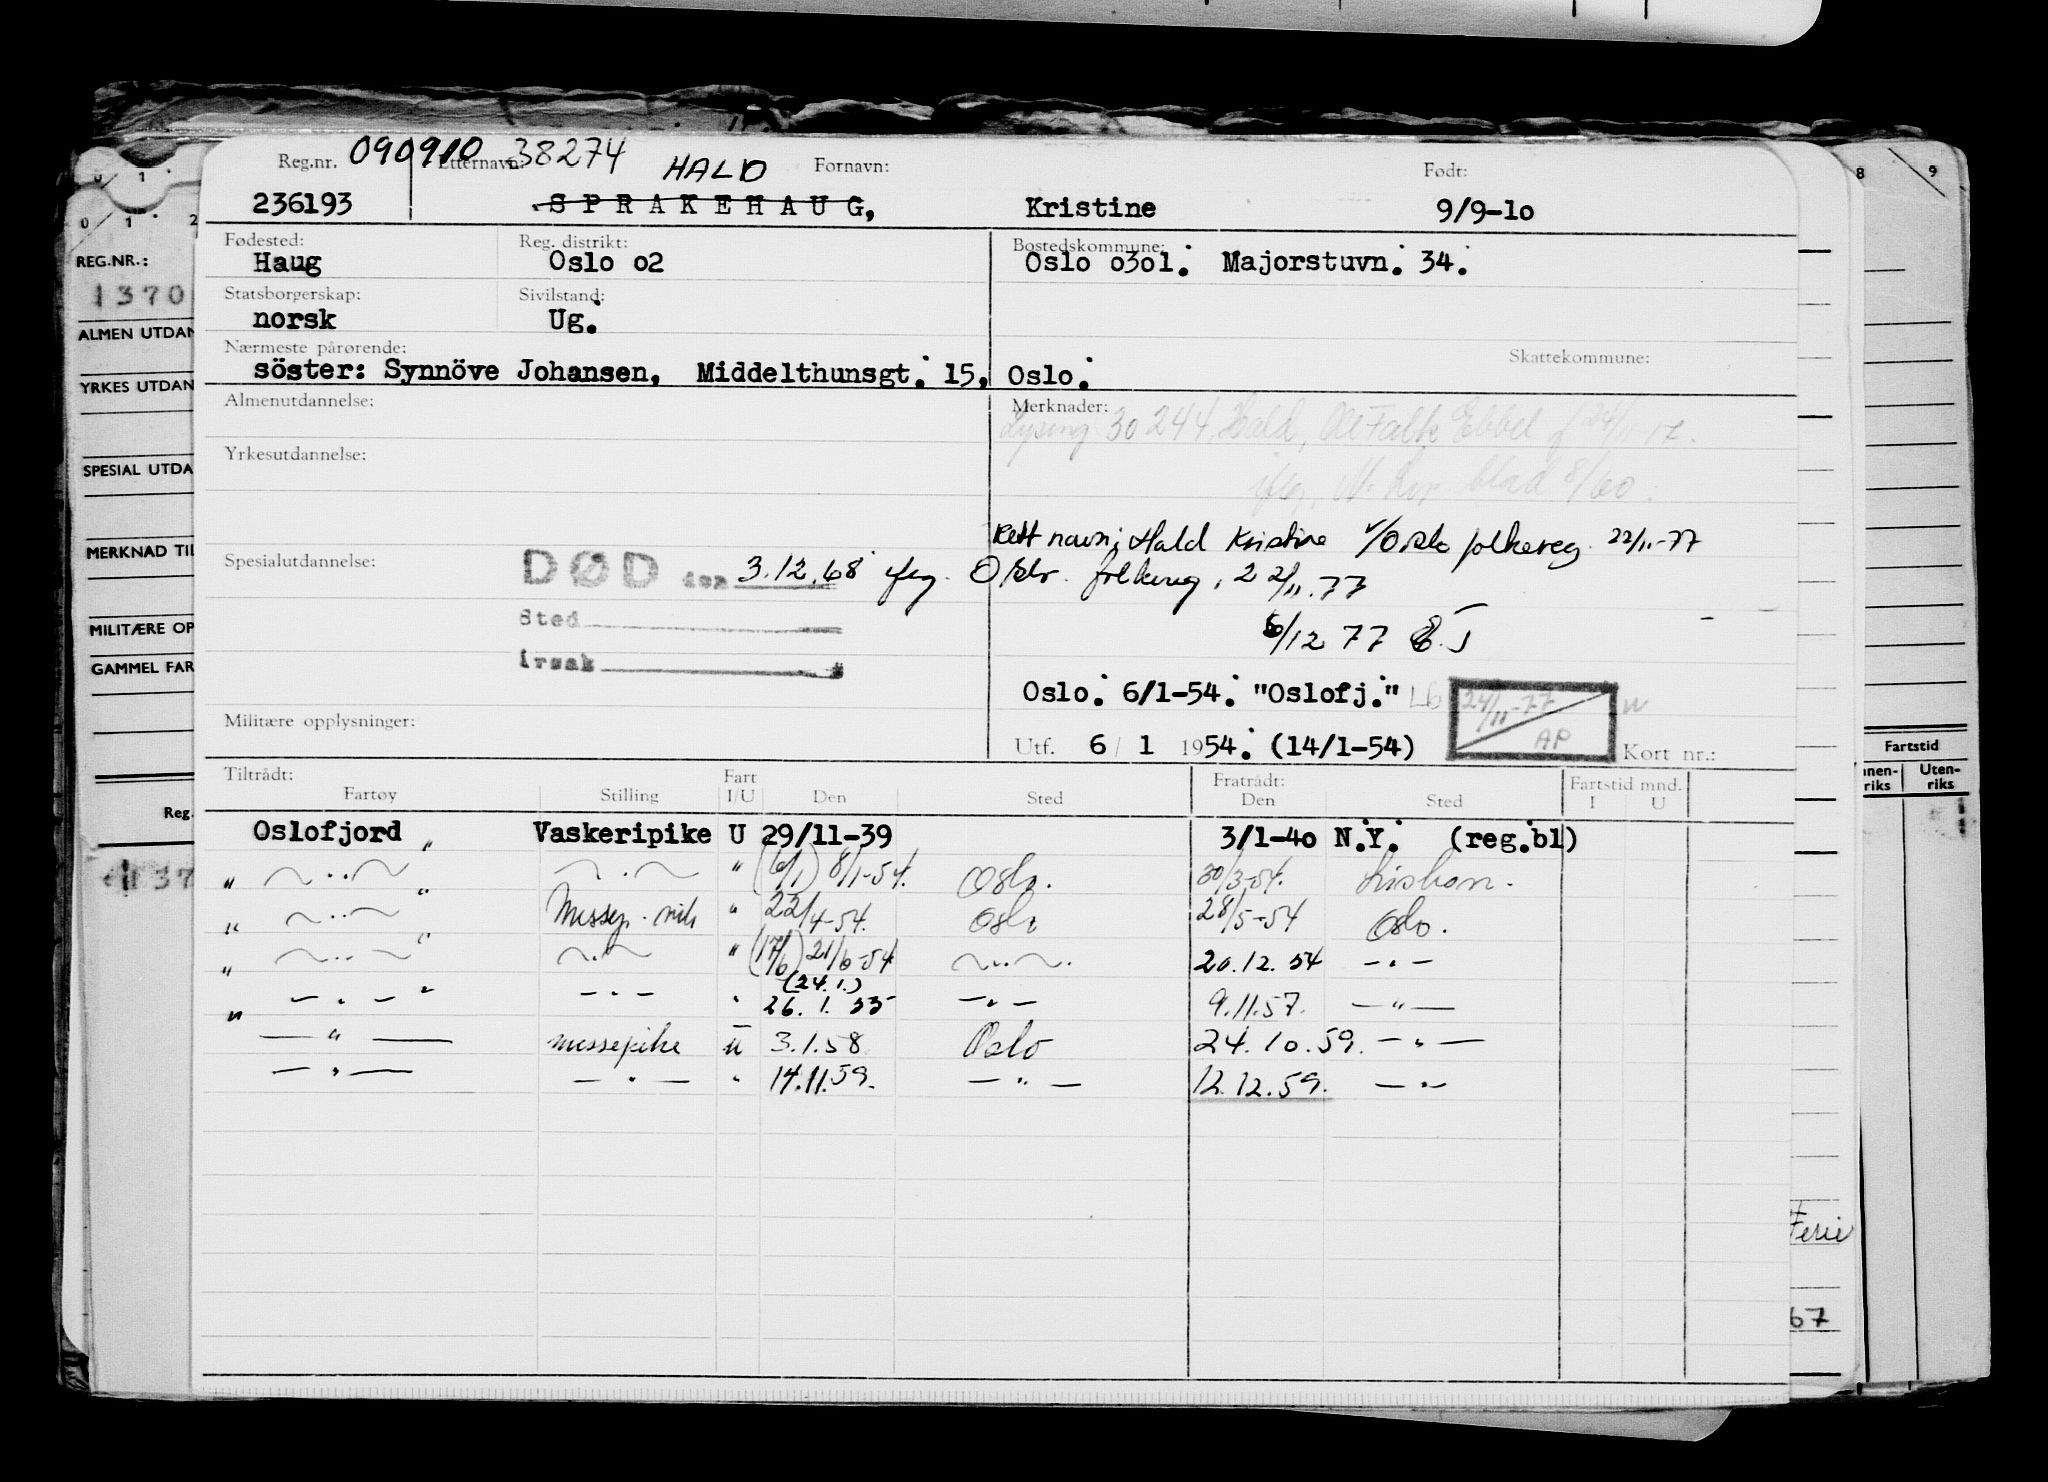 090910 38274
Reg.nr. Etternavn: HALD Fornavn: Født:
236193 SPRAKEHAUG, Kristine 9/9-1o
Fødested: Reg. distrikt: Bostedskommune:
Haug Oslo o2 Oslo o3o1. Majorstuvn. 34.
Statsborgerskap: Sivilstand:
norsk Ug.
Nærmeste pårørende: Skattekommune:
söster: Synnöve Johansen, Middelthunsgt. 15, Oslo.
Almenutdannelse: Merknader:
Lysing 30244 Hald, Ole Falk Ebbel f 24/11-17.
Yrkesutdannelse:
blad 8/60.
Rett navn; Hald Kristine v/Oslo folkereg. 22/11-77
Spesialutdannelse: DØD den 3.12.68 iflg. Oslo folkereg, 22/11.77
Sted
Årsak
6/12 77
Oslo. 6/1-54. "Oslofj." 24/11-77
AP
Militære opplysninger:
Utf. 6/1 1954. (14/1-54) Kort nr.:
Tiltrådt: Fart Fratrådt: Fartstid mnd.
Fartøy Stilling I/U Den Sted Den Sted I U
Oslofjord Vaskeripike U 29/11-39 3/1-4o N.Y. (reg.bl)
" ~..~ " ~.~ " (6/1) 8/1-54. Oslo. 30/3-54. Lissabon.
" ~..~ " Messep. " 22/4-54. Oslo 28/5-54 Oslo.
" ~..~ " ~.~ " (17/6) 21/6-54 ~..~. 20.12.54 -.-
" -.- " -.- " (24.1.) 26.1.55 -.- 9.11.57. -"-
-"- messepike U 3.1.58 Oslo 24.10.59. -"-
-"- -"- " 14.11.59. -"- 12.12.59. -"-
REG.NR.:
1370
ALMEN UTDAN
YRKES UTDAN
SPESIAL UTDA
MERKNAD TIL
MILITÆRE OP
GAMMEL FAR
Reg.
137
0 1 2
8 9
Fartstid
nnen-riks Uten-riks
Ferie
67